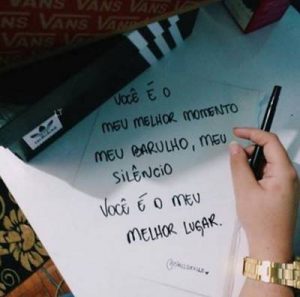 VANS VANS VANS VANS
VOCÊ É O
MEU MELHOR MOMENTO
MEU BARULHO, MEU
SILÊNCIO
VOCÊ É O MEU
MELHOR LUGAR.